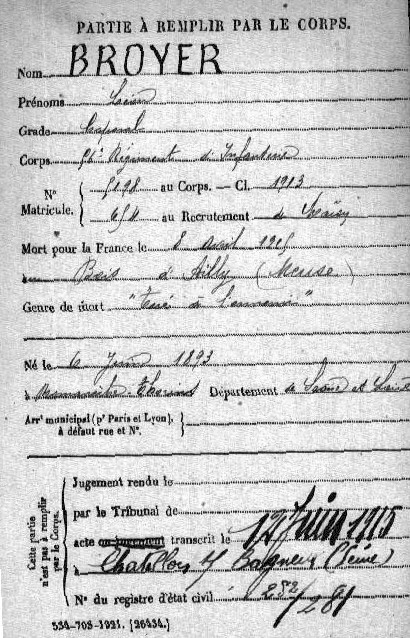 PARTIE À REMPLIR PAR LE CORPS.
Nom BROYER
Prénoms
Grade Caporal
Corps 56e Régiment d'Infanterie
Nº Matricule. 5198 au Corps. — Cl. 1913
654 au Recrutement de
Mort pour la France le 8 avril 1915
au Bois d'Ailly (Meuse)
Genre de mort "Tué à l'ennemi"
Né le 6 Juin 1893
à Département de Saône et Loire
Arrt municipal (pr Paris et Lyon), à défaut rue et Nº.
Cette partie n'est pas à remplir par le Corps.
Jugement rendu le
par le Tribunal de
acte ou jugement transcrit le 17 Juin 1915
à Châtillon s/ Bagneux (Seine)
Nº du registre d'état civil 292/281
534-708-1921. [26434.]